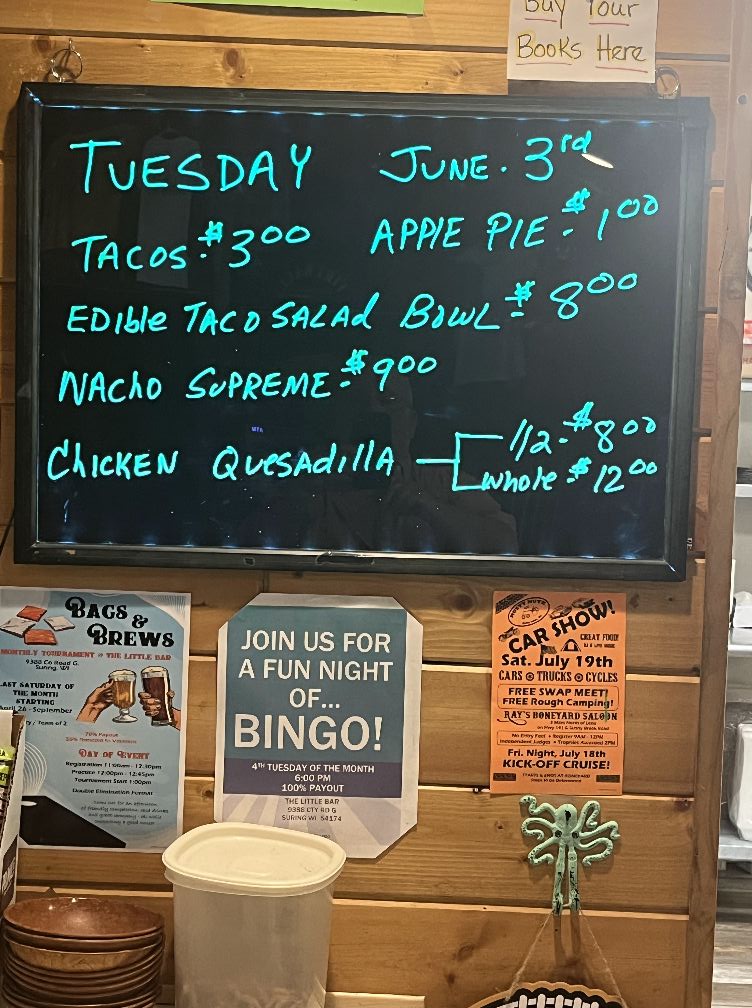 Buy Your
Books Here
TUESDAY JUNE. 3rd
TACOS-$3⁰⁰ APPlE PIE-$1⁰⁰
EDible TACO SALAd BOWL-$8⁰⁰
NAcho SUPREME-$9⁰⁰
ChICKEN QuesAdillA
1/2-$8⁰⁰
whole-$12⁰⁰
BAGS
&
BREWS
MONTHLY TOURNAMENT @ THE LITTLE BAR
9388 Co Road G,
Suring, WI
LAST SATURDAY OF
THE MONTH
STARTING
April 26 - September
Team of 2
DAY OF EVENT
Registration 11:00am - 12:30pm
Practice 12:00pm - 12:45pm
Tournament Start 1:00pm
Double Elimination Format
JOIN US FOR
A FUN NIGHT
OF...
BINGO!
4TH TUESDAY OF THE MONTH
6:00 PM
100% PAYOUT
THE LITTLE BAR
9388 CTY RD G
SURING WI 54174
CAR SHOW!
GREAT FOOD!
Sat. July 19th
CARS TRUCKS CYCLES
FREE SWAP MEET!
FREE Rough Camping!
RAY'S BONEYARD SALOON
No Entry Fee • Register 9AM - 12PM
Independent Judges • Trophies Awarded 2PM
Fri. Night, July 18th
KICK-OFF CRUISE!